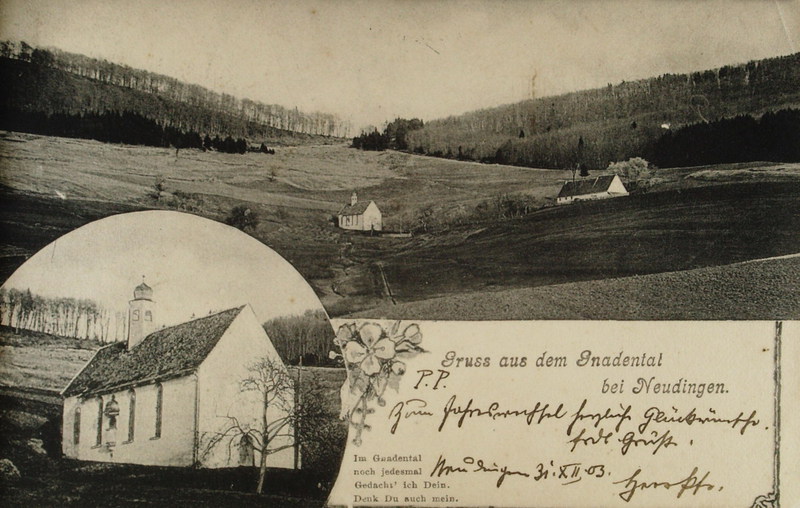 Gruss aus dem Gnadental
bei Neudingen.
P.P.
Zum Jahreswechsel herzliche Glückwünsche.
frdl. Grüße.
Neudingen 31.XII.03.
Im Gnadental
noch jedesmal
Gedacht' ich Dein.
Denk Du auch mein.